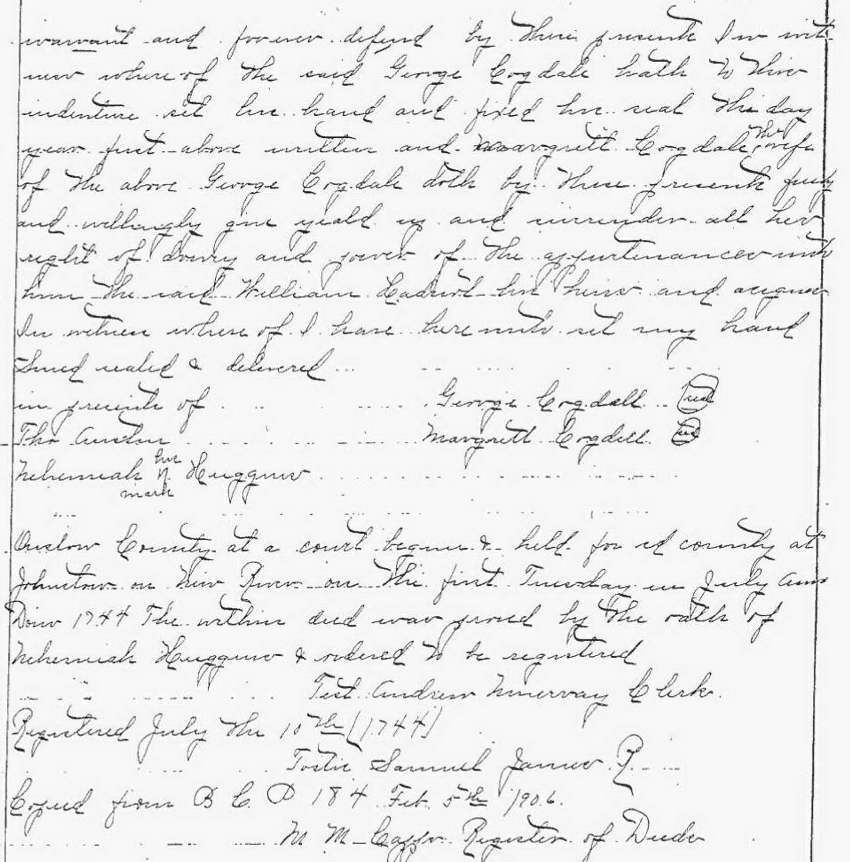 warrant and forever defend by these presents In wit-
ness where of the said George Cogdale hath to this
indenture set his hand and fixed his seal the day
year first above written and Margrett Cogdale the wife
of the above George Cogdale doth by these presents freely
and willingly give yeald up and surrender all her
right of dowry and power of the appurtenances unto
him the said William his heirs and assigns
In witness where of I have here unto set my hand
Sined sealed & delivered
in presents of George Cogdell seal
Tho Austin Margrett Cogdell seal
Nehemiah his N mark Huggins
Onslow County at a court begun & held for sd county at
Johnston on New River on the first Tuesday in July Anno
Dom 1744 The within deed was proved by the oath of
Nehemiah Huggins & ordered to be registered
Test Andrew Clerk.
Registered July the 10th (1744)
Testis Samuel James R
Copied from B C P 184 Feb. 5th 1906.
M M Register of Deeds